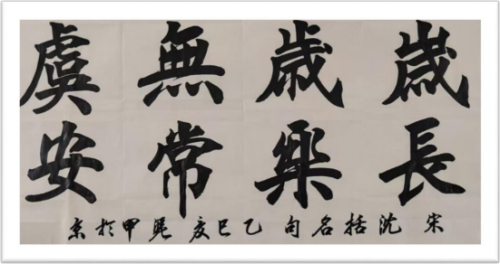 嵗歳無虞
長樂常安
宋沈括名句乙巳亥甲於京